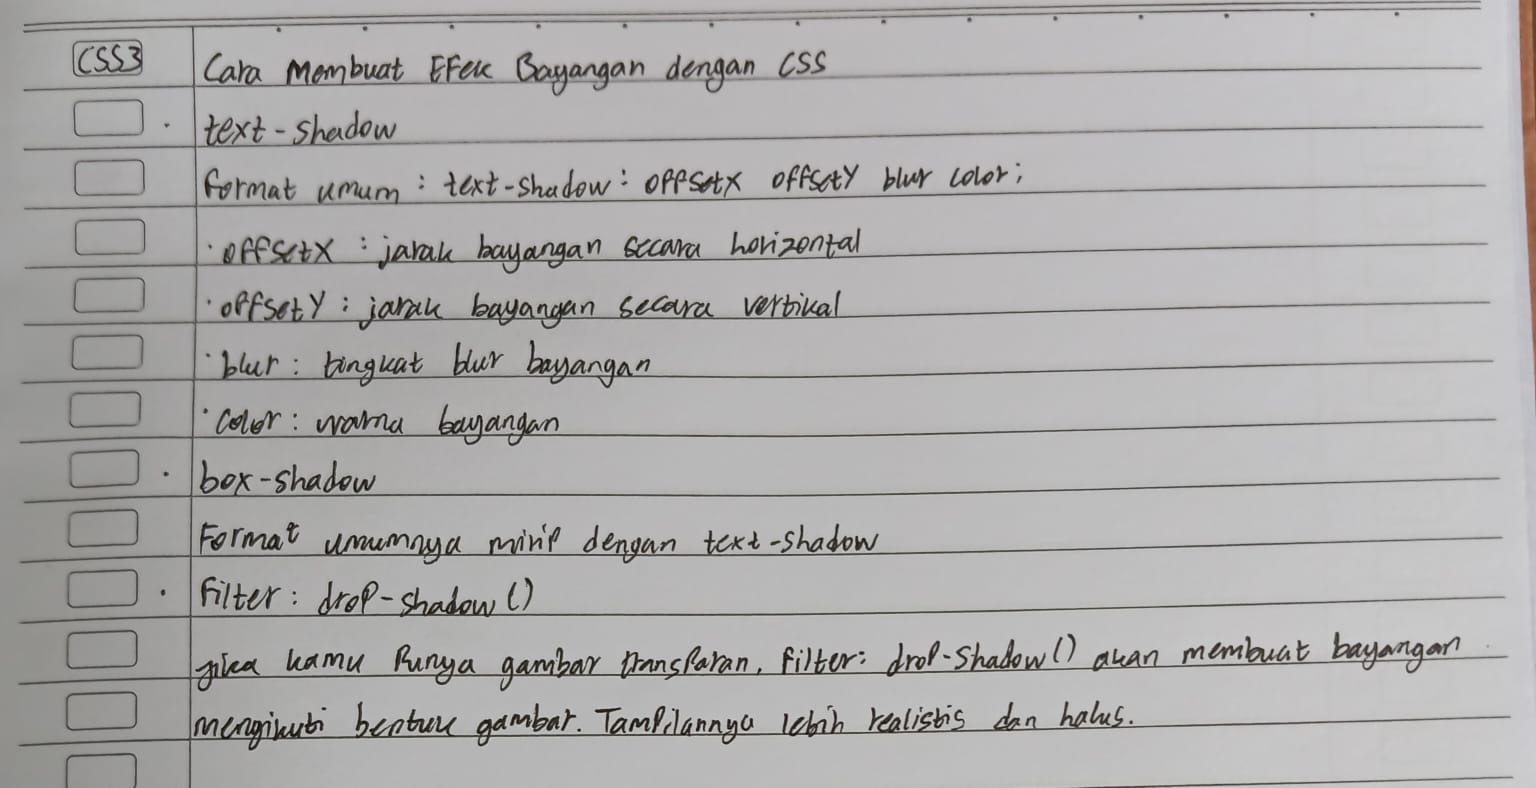 CSS3 Cara Membuat Efek Bayangan dengan CSS
· text-shadow
Format umum : text-shadow : offsetX offsetY blur color;
· offsetX : jarak bayangan secara horizontal
· offsetY : jarak bayangan secara vertikal
· blur : tingkat blur bayangan
· color : warna bayangan
· box-shadow
Format umumnya mirip dengan text-shadow
· Filter : drop-shadow ()
jika kamu punya gambar transparan, filter: drop-shadow () akan membuat bayangan
mengikuti bentuk gambar. Tampilannya lebih realistis dan halus.